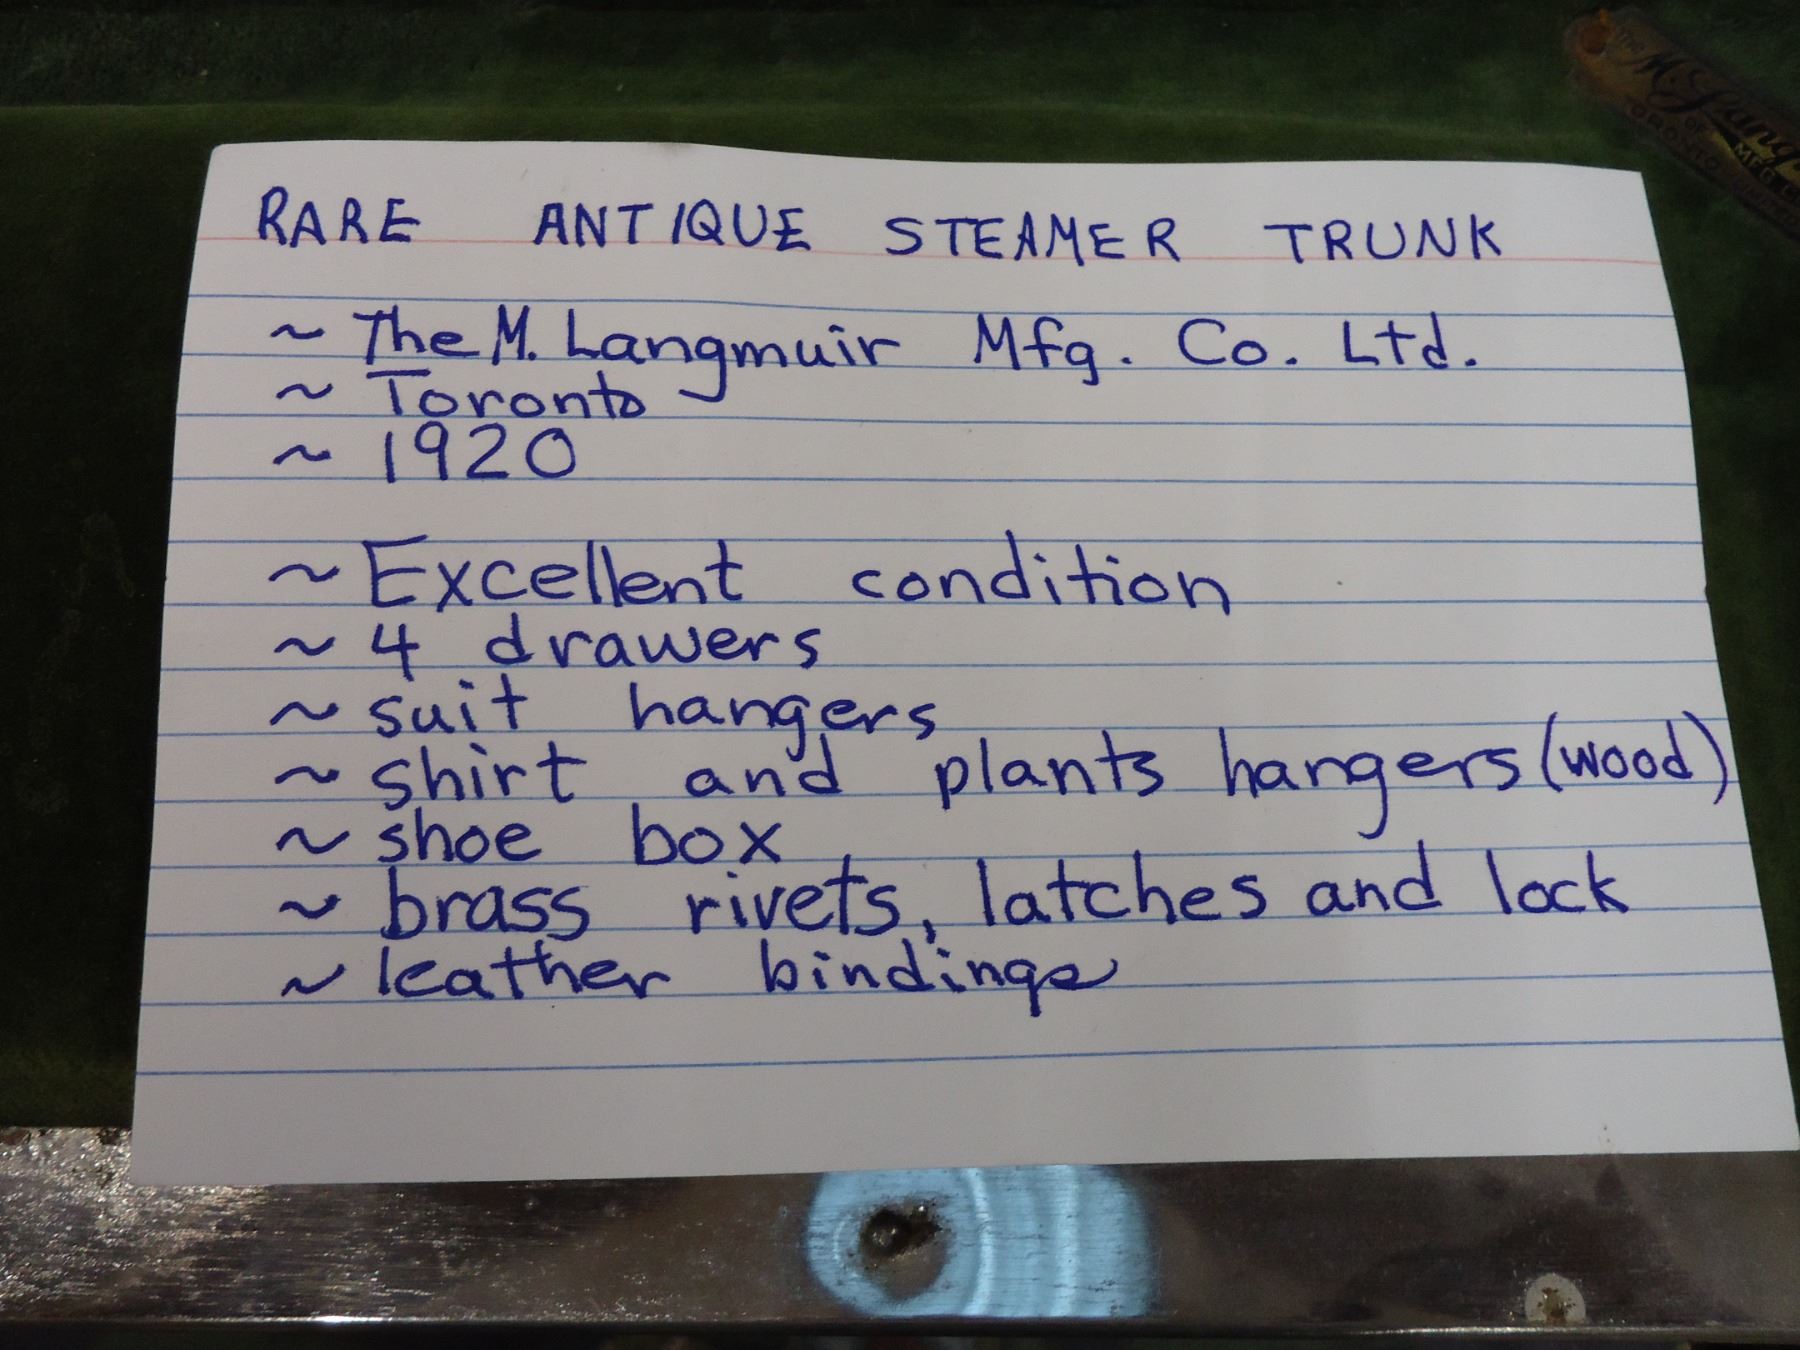 RARE ANTIQUE STEAMER TRUNK
~ The M. Langmuir Mfg. Co. Ltd.
~ Toronto
~ 1920
~ Excellent condition
~ 4 drawers
~ suit hangers
~ shirt and plants hangers (wood)
~ shoe box
~ brass rivets, latches and lock
~ leather bindings
The
M. Lang
OF
TORONTO
MFG